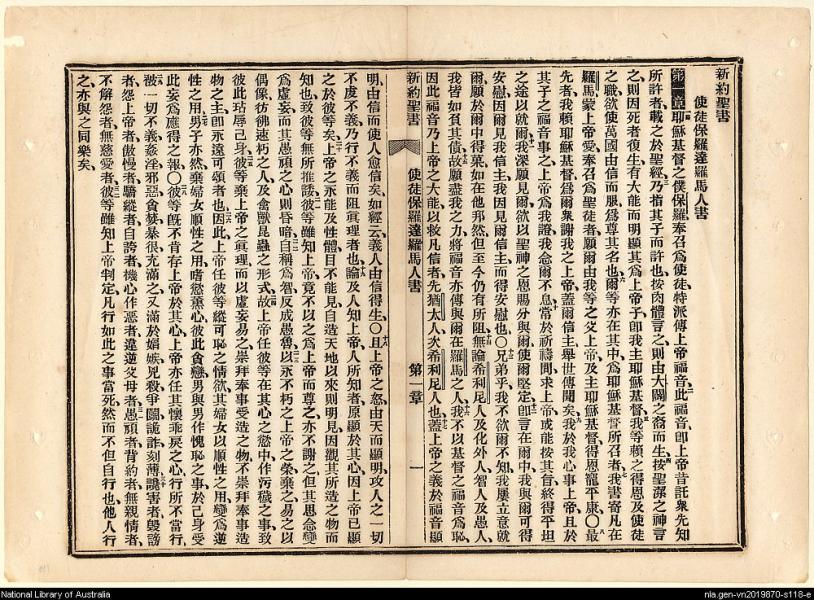 新約聖書
使徒保羅達羅馬人書
第一章耶穌基督之僕保羅奉召爲使徒、特派傳上帝福音、二此福音、卽上帝昔託衆先知
所許者、載之於聖經、乃指其子而許也、按肉體言之、則由大闢之裔而生、按聖潔之神言
之、則因死者復生、有大能而明顯其爲上帝子、卽我主耶穌基督、我等賴之得恩及使徒
之職、欲使萬國由信而服、爲尊其名也、爾等亦在其中、爲耶穌基督所召者、我書寄凡在
羅馬、蒙上帝愛、奉召爲聖徒者、願爾由我等之父上帝、及主耶穌基督、得恩寵平康、〇最
先者、我賴耶穌基督、爲爾衆謝我之上帝、蓋爾信主、舉世傳聞矣、我於我心事上帝、且於
其子之福音事之、上帝爲我證、我念爾不息、常於祈禱間、求上帝或能按其旨、終得平坦
之途以就爾、我深願見爾、欲以聖神之恩賜分與爾、使爾堅定、卽言在爾中、我與爾可得
安慰、因爾見我信主、我因見爾信主、而得安慰也、〇兄弟乎、我不欲爾不知、我屢立意就
爾、願於爾中得菓、如在他邦然、但至今仍有所阻、無論希利尼人、及化外人、智人、及愚人、
我皆如負其債、故願盡我之力、將福音亦傳與爾在羅馬之人、我不以基督之福音爲恥、
因此福音、乃上帝之大能、以救凡信者、先猶太人、次希利尼人也、蓋上帝之義、於福音顯
新約聖書
使徒保羅達羅馬人書
第一章
一
明、由信而使人愈信矣、如經云、義人由信得生、〇且上帝之怒、由天而顯明、攻人之一切
不虔不義、乃行不義而阻眞理者也、論及人知上帝、人所知者、原顯於其心、因上帝已顯
之於彼等矣、上帝之永能及性體、目不能見、自造天地以來則明見、因觀其所造之物而
知也、致彼等無所推諉、彼等雖知上帝、竟不以之爲上帝而尊之、亦不謝之、但其思念變
爲虛妄、而其愚頑之心則昏暗、自稱爲智、反成愚魯、以永不朽之上帝之榮、棄之易之以
偶像、彷彿速朽之人、及禽獸昆蟲之形式、故上帝任彼等在其心之慾中、作污穢之事、致
彼此玷辱己身、彼等棄上帝之眞理、而以虛妄易之、崇拜奉事受造之物、不崇拜奉事造
物之主、卽永遠可頌者也、因此上帝任彼等縱可恥之情欲、其婦女以順性之用、變爲逆
性之用、男子亦然、棄婦女順性之用、嗜慾薰心、彼此貪戀、男與男作愧恥之事、於己身受
此妄爲應得之報、〇彼等旣不肯存上帝於其心、上帝亦任其懷乖戾之心、行所不當行、
被一切不義、姦淫、邪惡、貪婪、暴很充滿之、又滿於娼嫉、兇殺、爭鬭、詭詐、刻薄、讒害者、毀謗
者、怨上帝者、傲慢者、驕縱者、自誇者、機心作惡者、違逆父母者、愚頑者、背約者、無親情者、
不解怨者、無慈愛者、彼等雖知上帝判定、凡行如此之事當死、然而不但自行也、他人行
之、亦與之同樂矣、
National Library of Australia
nla.gen-vn2019870-s118-e